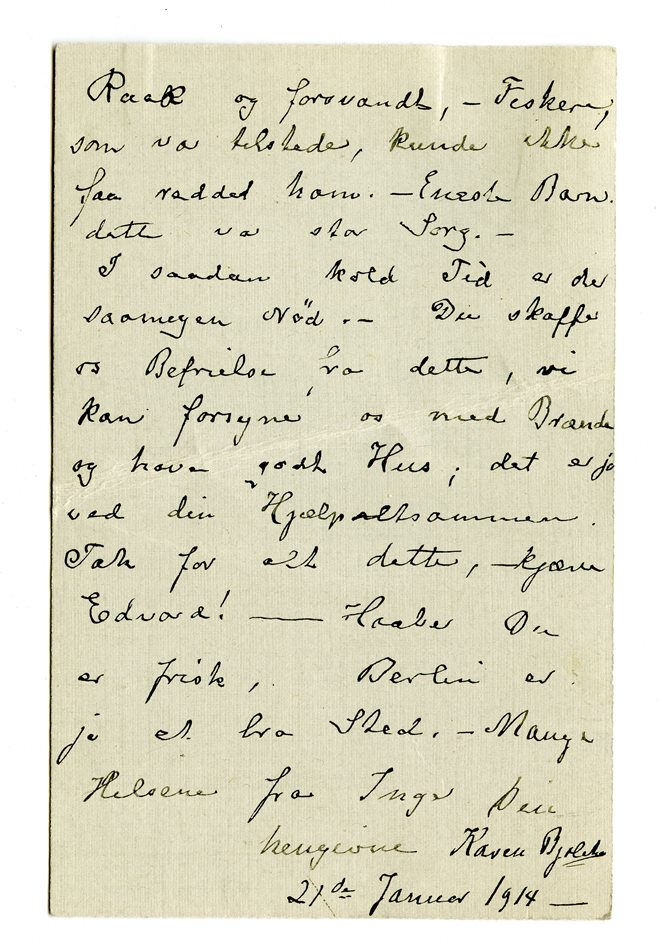 Raak og forsvandt, – Fiskere,
som va tilstede, kunde ikke
faa reddet ham. – Eneste Barn.
dette va stor Sorg. –
I saadan kold Tid er der
saamegen Nød. – Du skaffe
os Befrielse fra dette, vi
kan forsyne os med Brænde
og have godt Hus; det er jo
ved din Hjælp altsammen.
Tak for alt dette, – kjære
Edvard! — Haaber Du
er frisk, Berlin er
jo et bra Sted. – Mange
Helsene fra Inger Din
hengivne Karen Bjølstad
21de Januer 1914 —